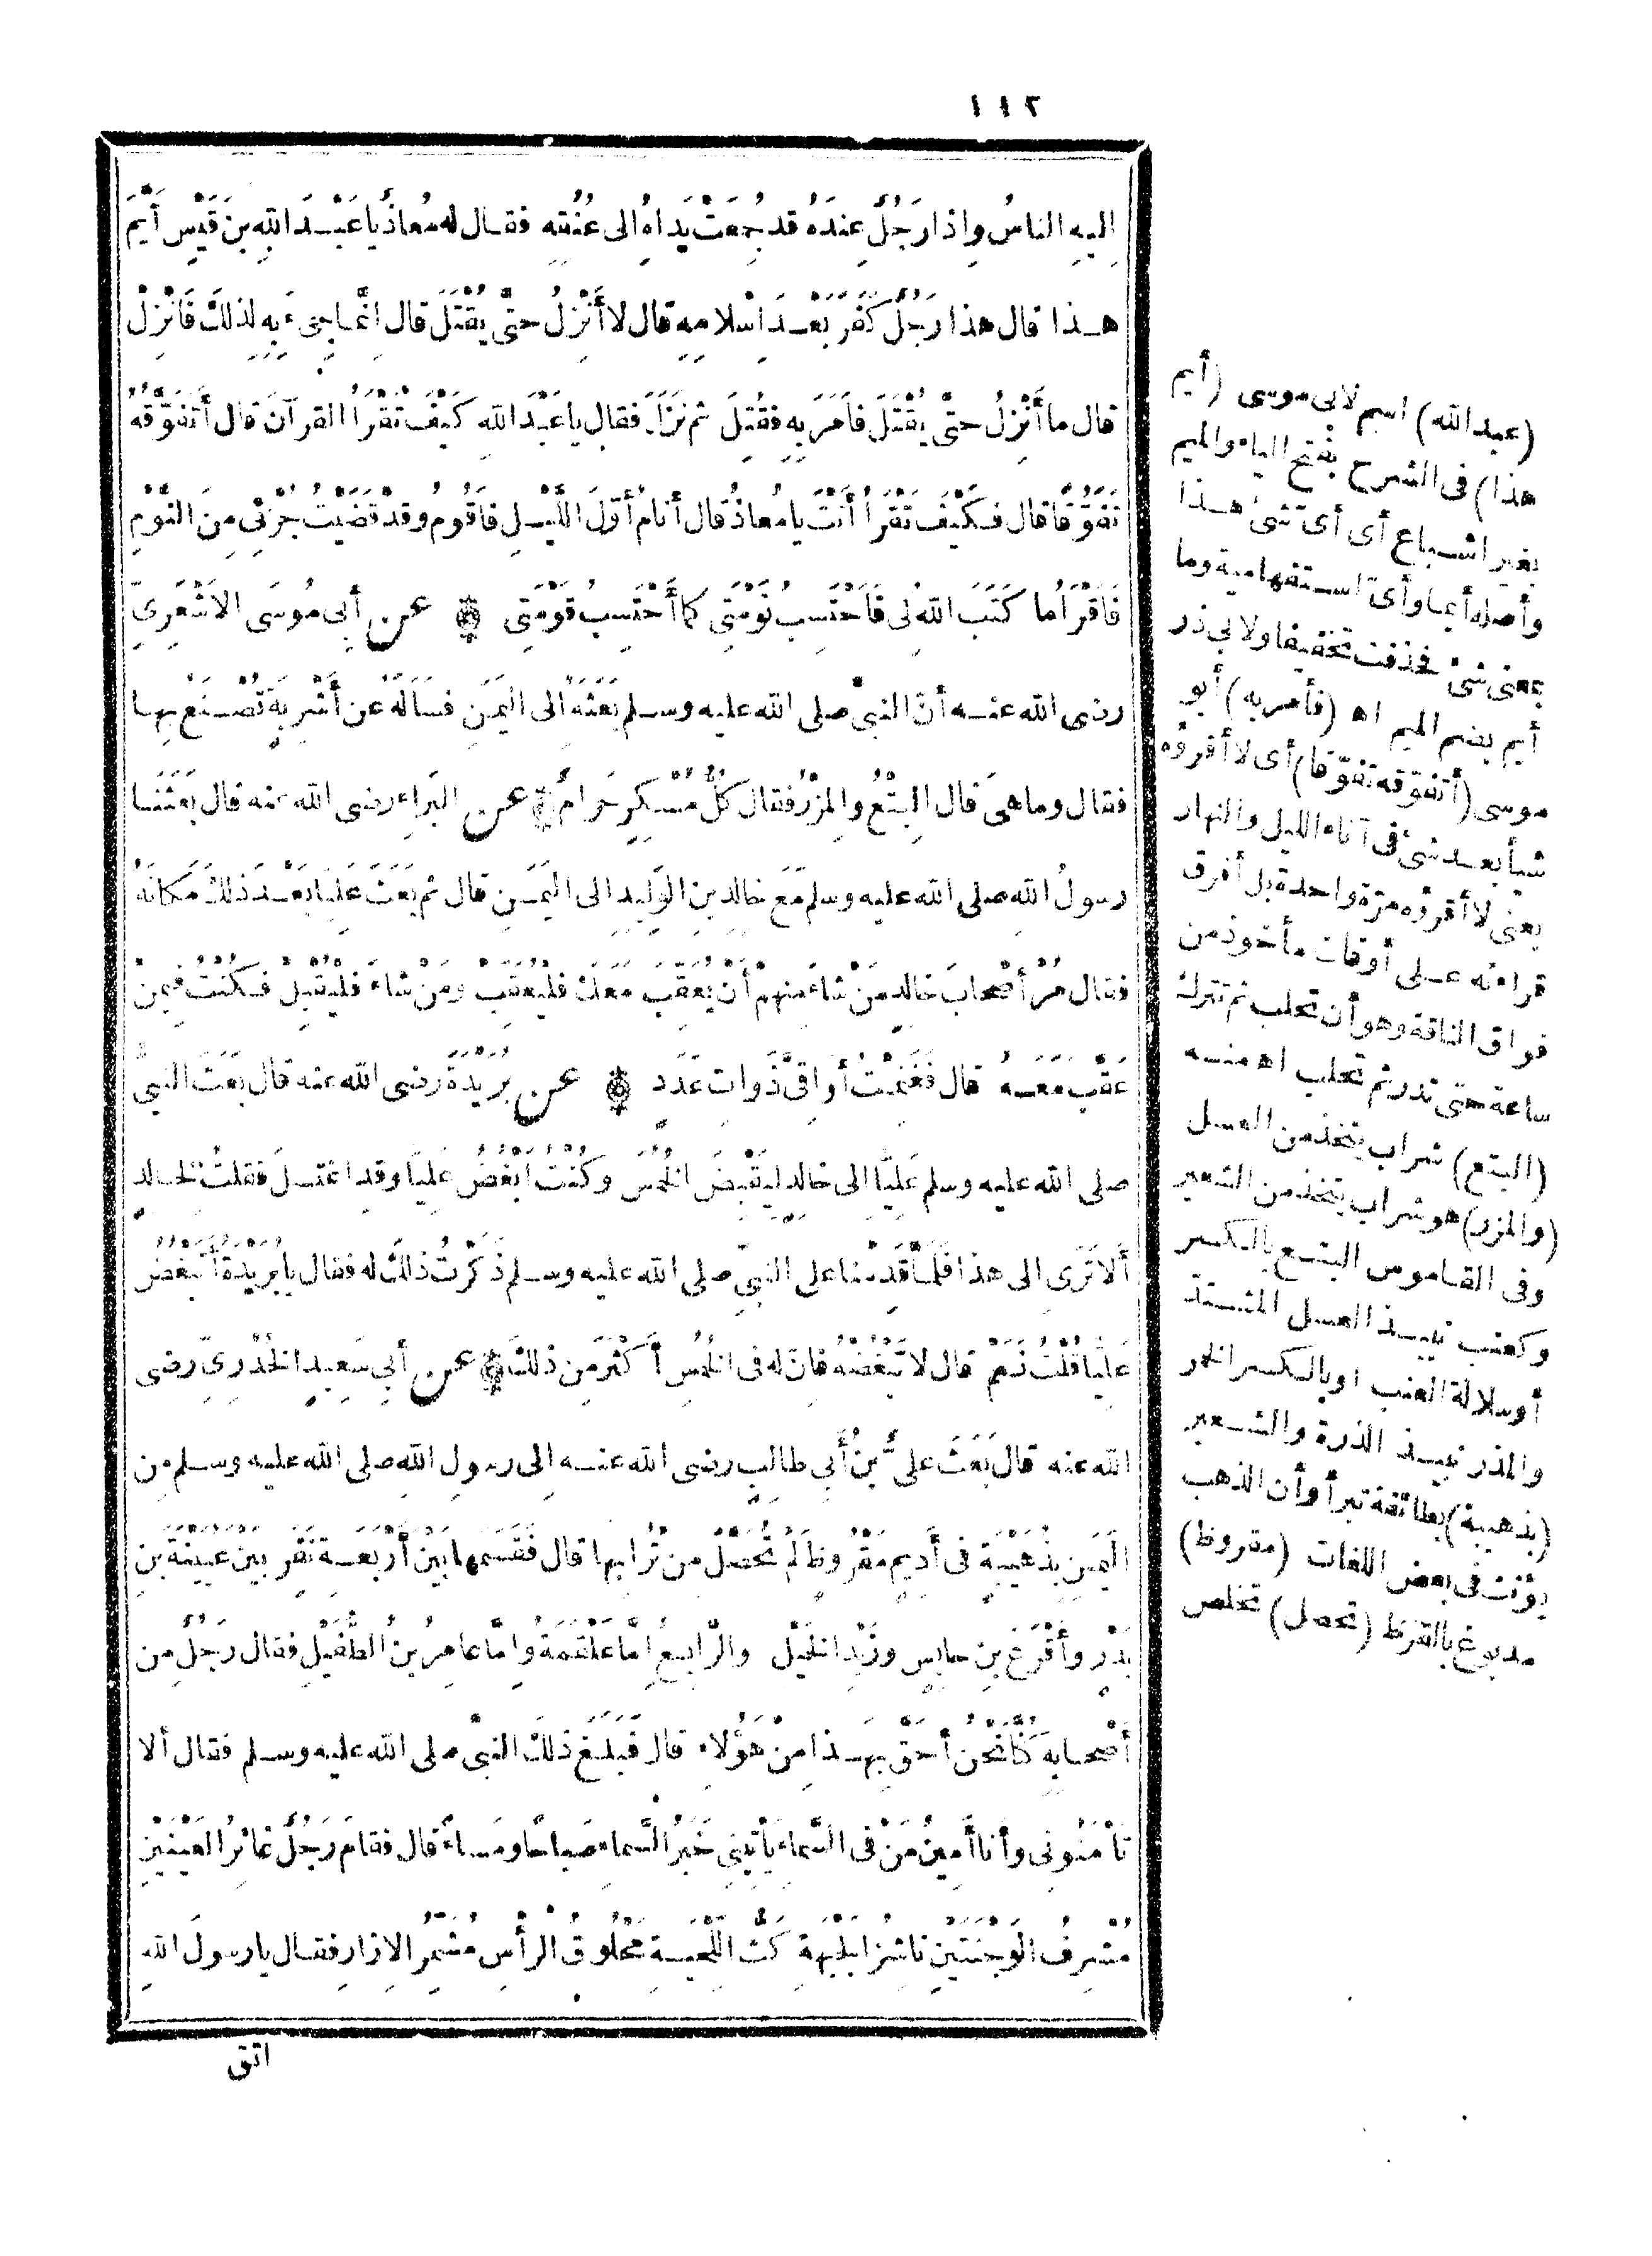 ١١٢
اِليهِ الناسُ واِذا رَجُلٌ عِندَهُ قد جُمِعَتْ يَداهُ اِلى عُنُقِهِ فقال له مُعاذُ يا عَبْدَ اللّهِ بنَ قَيْسٍ أيَّمَ
هذا قال هذا رَجُلٌ كَفَرَ بَعْدَ اسْلامِهِ قال لا أَنْزِلُ حتَّى يُقْتَلَ قال اِنَّما جِىءَ بِهِ لِذلِكَ فَانْزِلْ
قال ما أَنْزِلُ حتَّى يُقْتَلَ فأَمَرَ بِهِ فقُتِلَ ثم نَزَلَ فقال يا عَبْدَ اللّهِ كَيْفَ تَقْرَأُ القرآنَ قال أَتَفَوَّقُهُ
تَفَوُّقًا قال فَكَيْفَ تَقْرَأُ أَنْتَ يا مُعاذُ قال أنامُ أَوَّلَ اللَّيْلِ فأَقُومُ وقدْ قَضَيْتُ جُزْئِى مِنَ النَّوْمِ
فَأَقْرَأُ ما كَتَبَ اللّهُ لِى فَأَحْتَسِبُ نَوْمَتِى كما أَحْتَسِبُ قَوْمَتِى ۞ عن أبِى مُوسَى الاَشْعَرِىِّ
رضى اللّه عنه أنّ النبىَّ صلى اللّه عليه وسلم بَعَثَهُ الى اليَمَنِ فسَأَلَهُ عن أَشْرِبَةٍ تُصْنَعُ بِها
فقال وما هىَ قال البِتْعُ والمِزْرُ فقال كُلُّ مُسْكِرٍ حَرامٌ ۞ عن البَراءِ رضى اللّه عنه قال بَعَثَنا
رسولُ اللّهِ صلى اللّه عليه وسلم مَعَ خالِدِ بنِ الوَلِيدِ الى اليَمَنِ قال ثم بَعَثَ عَلِيًّا بَعْدَ ذلِكَ مَكانَهُ
فقال مُرْ أَصْحابَ خالِدٍ مَنْ شاءَ مِنهمْ أَنْ يُعَقِّبَ مَعَكَ فلْيُعَقِّبْ ومَنْ شاءَ فلْيُقْبِلْ فكُنْتُ فِيمنْ
عَقَّبَ مَعَهُ قال فَغَنِمْتُ أَواقِىَّ ذَواتِ عَدَدٍ ۞ عن بُرَيْدَةَ رضى اللّه عنه قال بَعَثَ النبىُّ
صلى اللّه عليه وسلم عَلِيًّا الى خالِدٍ لِيَقْبِضَ الخُمُسَ وكُنْتُ أُبْغِضُ عَلِيًّا وقدِ اغْتَسَلَ فقلتُ لخالدٍ
أَلا تَرَى الى هذا فَلَمَّا قَدِمْنا على النبىِّ صلى اللّه عليه وسلم ذَكَرْتُ ذلِكَ له فقال يا بُرَيْدَةُ أَتُبْغِضُ
عَلِيًّا قُلْتُ نَعَمْ قال لا تُبْغِضْهُ فانّ له فى الخُمُسِ أَكْثَرَ مِن ذلِكَ ۞ عن أبِى سَعِيدٍ الخُدْرِىِّ رضى
اللّه عنه قال بَعَثَ علىُّ بنُ أَبِى طالِبٍ رضى اللّه عنه اِلى رسولِ اللّهِ صلى اللّه عليه وسلم مِن
اليَمَنِ بِذُهَيْبَةٍ فى أَدِيمٍ مَقْرُوظٍ لَمْ تُحَصَّلْ من تُرابِها قال فَقَسَمَها بَيْنَ أَرْبَعَةِ نَفَرٍ بَيْنَ عُيَيْنَةَ بنِ
بَدْرٍ وأَقْرَعَ بنِ حابِسٍ وزَيْدِ الخَيْلِ والرَّابِعُ اِمَّا عَلْقَمَةُ واِمَّا عامِرُ بنُ الطُّفَيْلِ فقال رَجُلٌ من
أَصْحابِهِ كُنَّا نَحْنُ أَحَقَّ بِهَذا مِنْ هَؤُلاءِ قال فَبَلَغَ ذلكَ النبىَّ صلى اللّه عليه وسلم فقال ألا
تَأْمَنُونِى وأنا أَمِينُ مَنْ فى السَّماءِ يَأْتِينِى خَبَرُ السَّماءِ صَباحًا ومَساءً قال فقامَ رَجُلٌ غائِرُ العَيْنَيْنِ
مُشْرِفُ الوَجْنَتَيْنِ ناشِزُ الجَبْهَةِ كَثُّ اللِّحْيَةِ مَحْلُوقُ الرأْسِ مُشَمَّرُ الاِزارِ فقال يا رسولَ اللّهِ
اتق
(عبد اللّه) اسم لابى موسى (أيم
هذا) فى الشرح بفتح الياء والميم
بغير اشباع أى أىّ شئ هذا
وأصله أيما وأىّ استفهامية وما
بمعنى شئ فحذفت تخفيفا ولابى ذر
أيم بضم الميم اه (فأمر به) أبو
موسى (أتفوّقه تفوّقا) أى لا أقرؤه
شيأ بعد شئ فى آناء الليل والنهار
يعنى لا أقرؤه مرّة واحدة بل أفرق
قراءته على أوقات مأخوذ من
فواق الناقة وهو أن تحلب ثم تترك
ساعة حتى تدر ثم تحلب اه منه
(البتع) شراب يتخذ من العسل
(والمزر) هو شراب يتخذ من الشعير
وفى القاموس البتع بالكسر
وكعنب نبيذ العسل المشتد
أو سلالة العنب او بالكسر الخمر
والمذر نبيذ الذرة والشعير
(بذهيبة) بطائفة تبرا وأن الذهب
يؤنث فى بعض اللغات (مقروظ)
مدبوغ بالقرظ (تحصل) تخلص